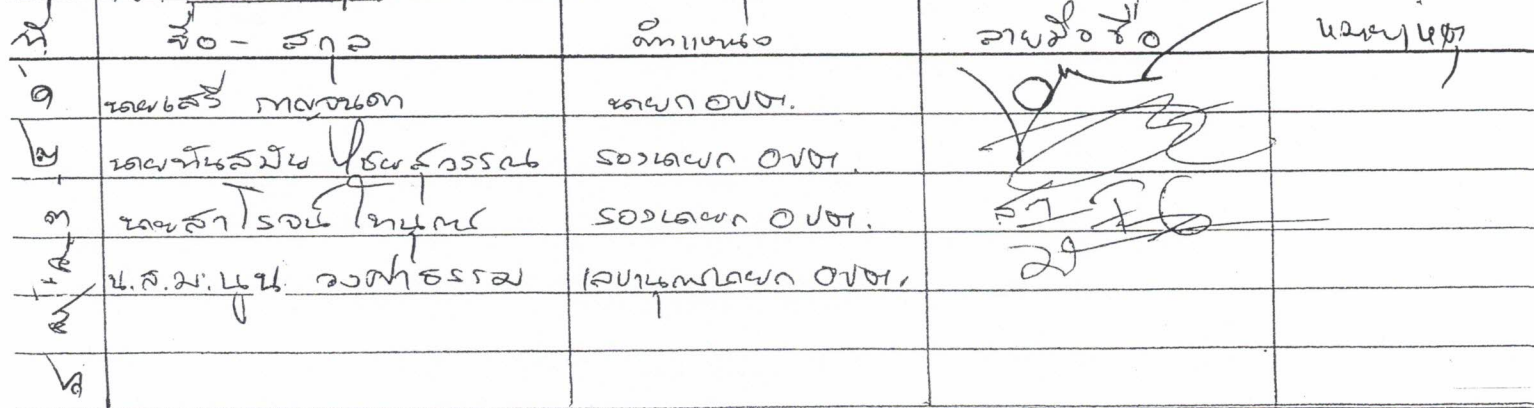 ที่ ชื่อ - สกุล ตำแหน่ง ลายมือชื่อ หมายเหตุ
๑ นายเสรี กาญจนดา นายก อบต.
๒ นายทันสมัน ไชยสุวรรณ รองนายก อบต.
๓ นายสาโรจน์ รองนายก อบต.
๔ น.ส.มะนูน วงฬาธรรม เลขานุการนายก อบต.
๕
๖